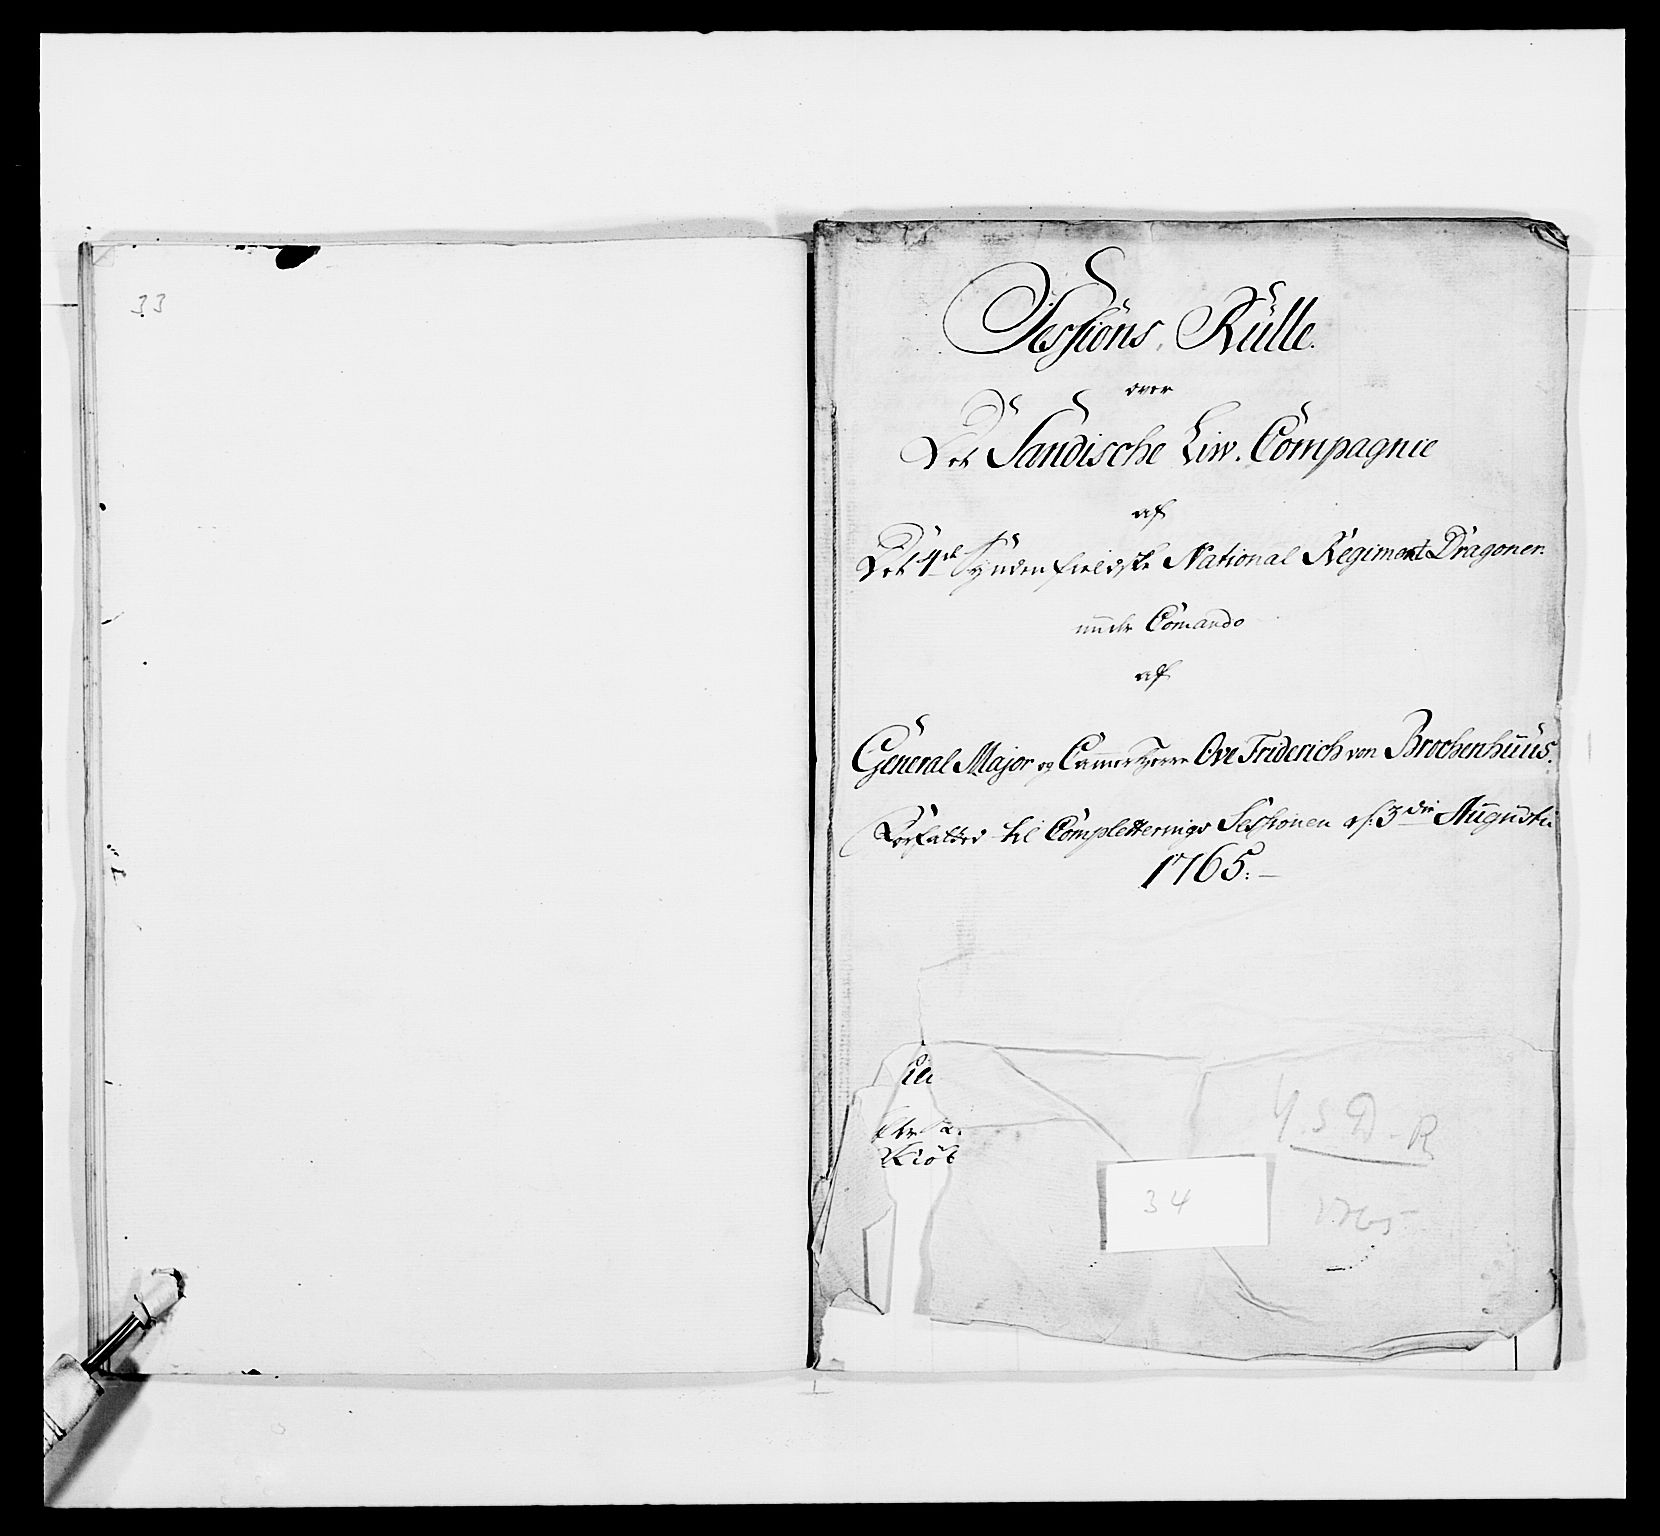 33
Sessions Rulle.
over
Det Sandische Liv. Compagnie
af
Det 4de Syndenfieldske National Regiment Dragoner
under Comando
af
General Major og Cammer Herre Ove Friderich von Brochenhuus.
Forfatted til Completterings Sessionen d. 3die Augusti
1765.
4. S D-R
34
1765